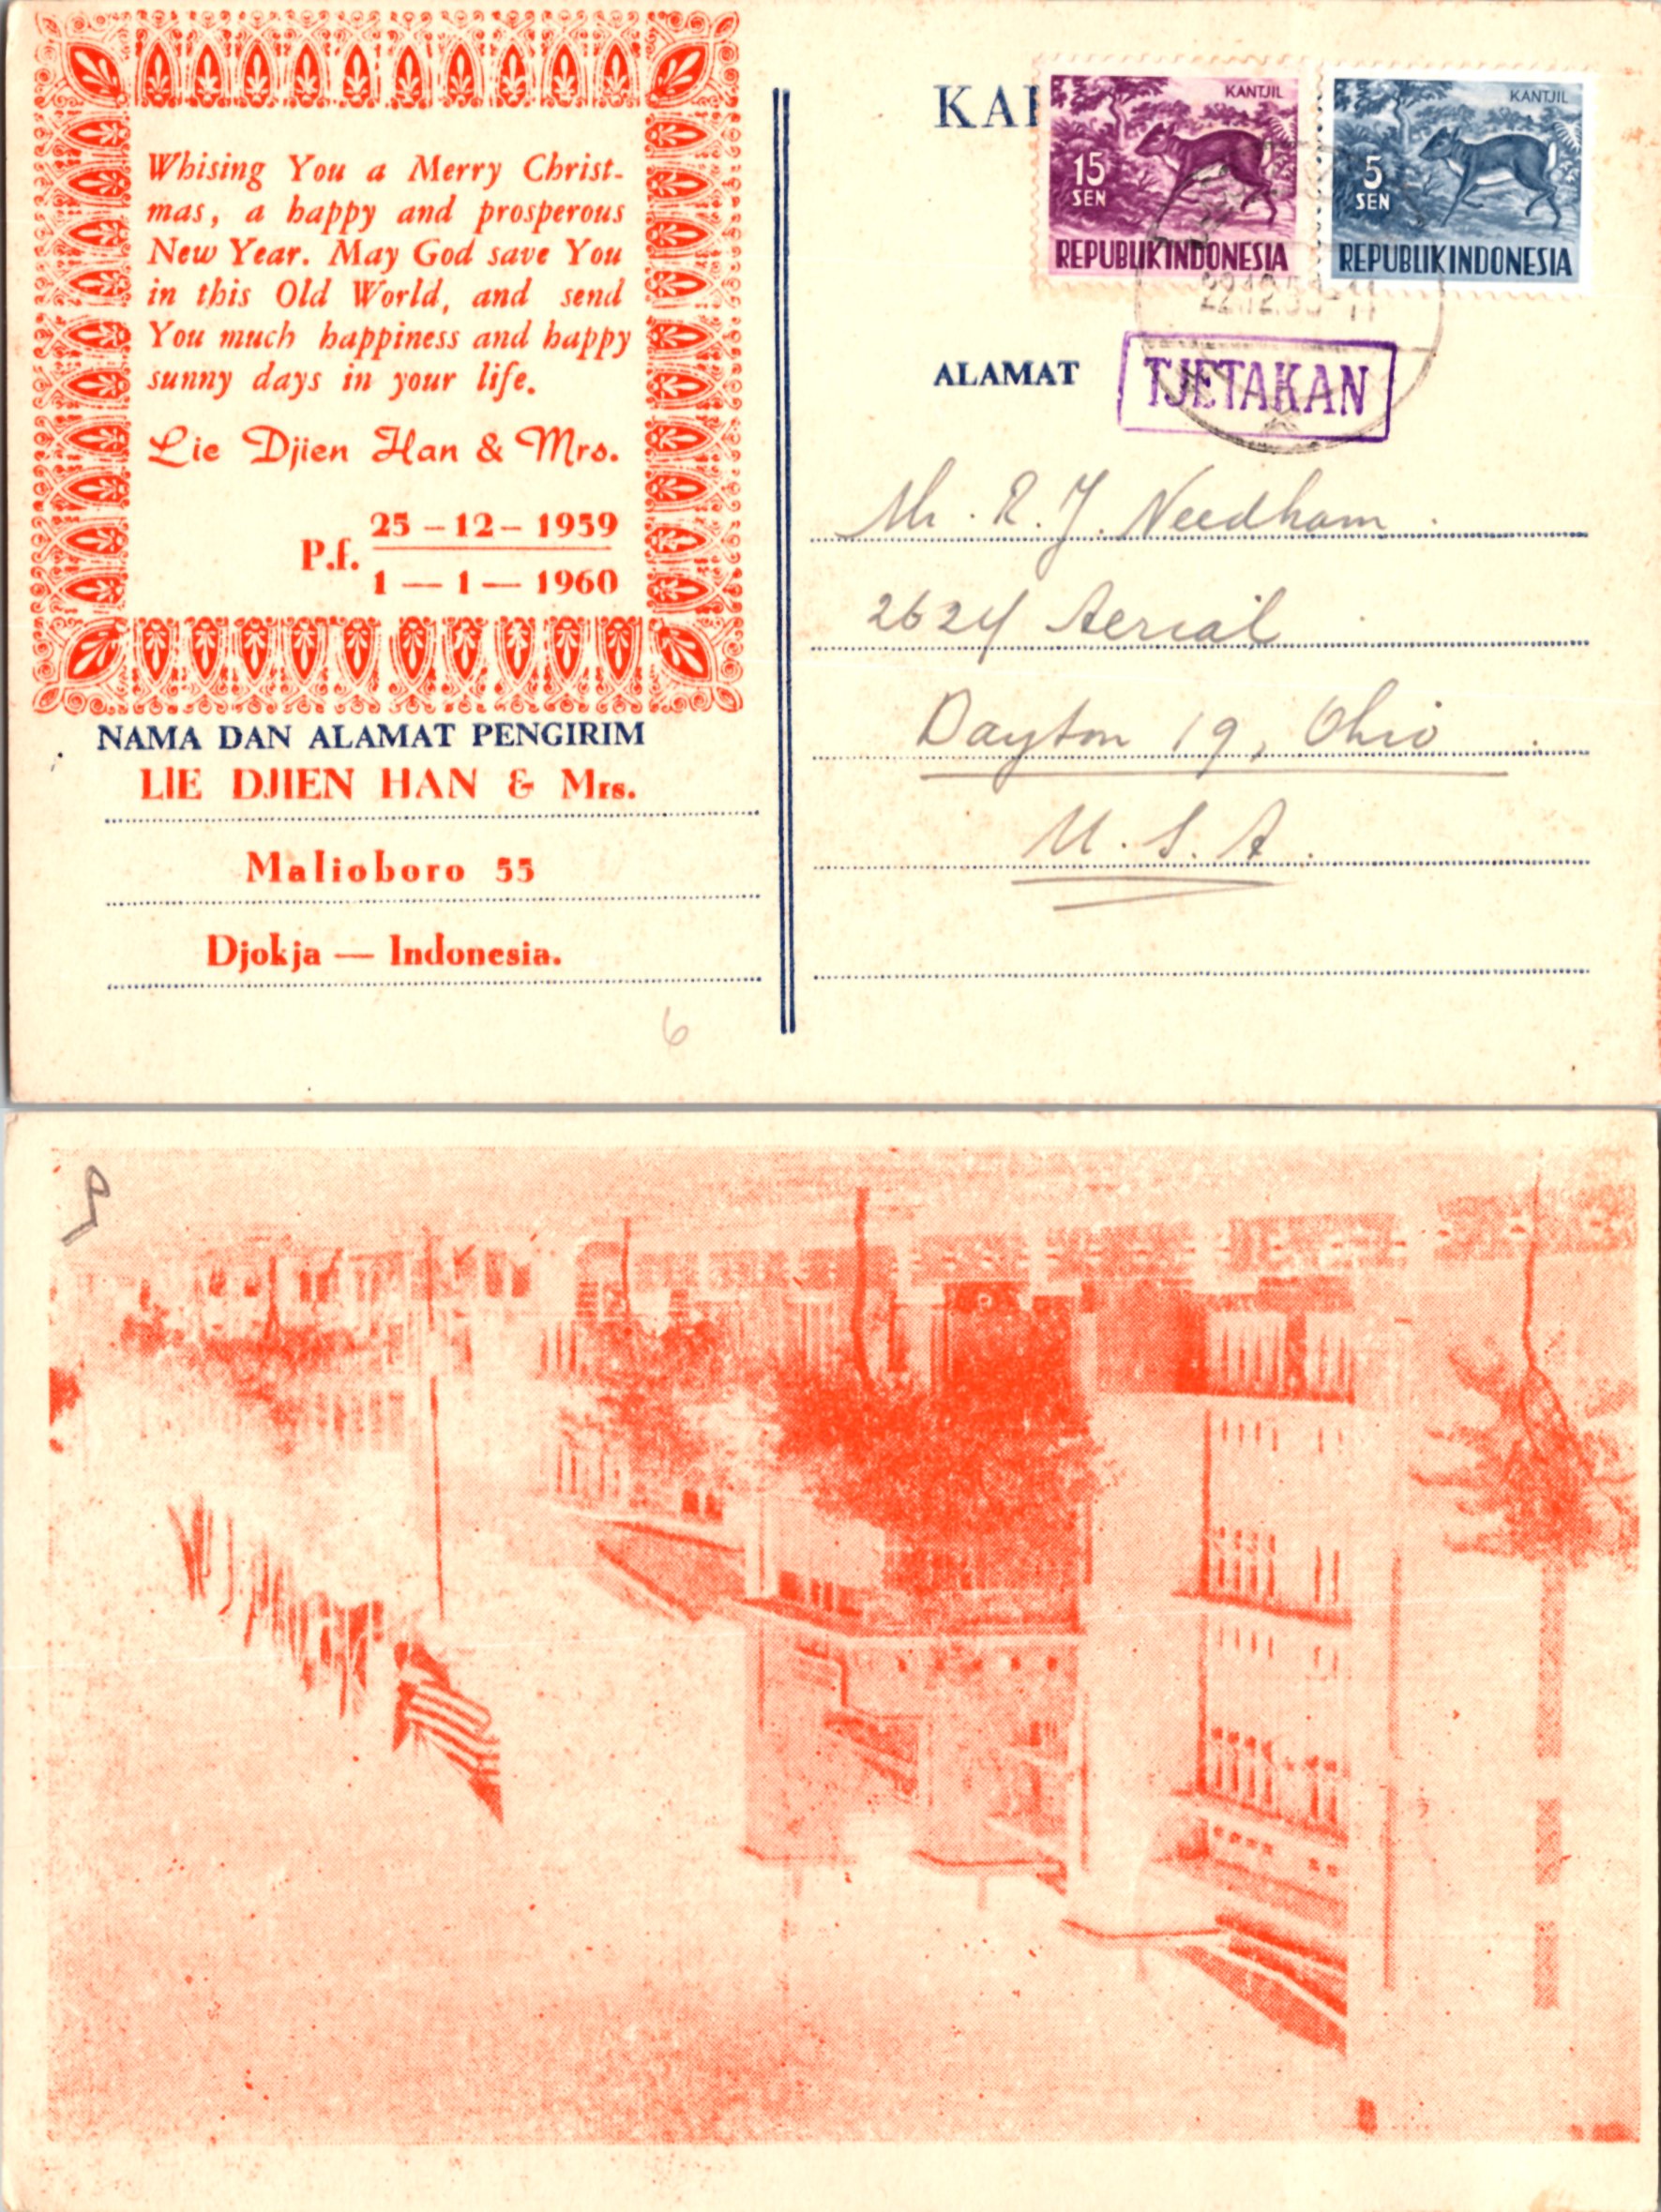 Whising You a Merry Christ-
mas, a happy and prosperous
New Year. May God save You
in this Old World, and send
You much happiness and happy
sunny days in your life.
Lie Djien Han & Mrs.
P.f. 25 – 12 – 1959
1 — 1 — 1960
NAMA DAN ALAMAT PENGIRIM
LIE DJIEN HAN & Mrs.
Malioboro 55
Djokja — Indonesia.
6
KA
KANTJIL
15
SEN
REPUBLIK INDONESIA
KANTJIL
5
SEN
REPUBLIK INDONESIA
ALAMAT
TJETAKAN
Mr. R. J. Needham
2624 Aerial
Dayton 19, Ohio
U. S. A.